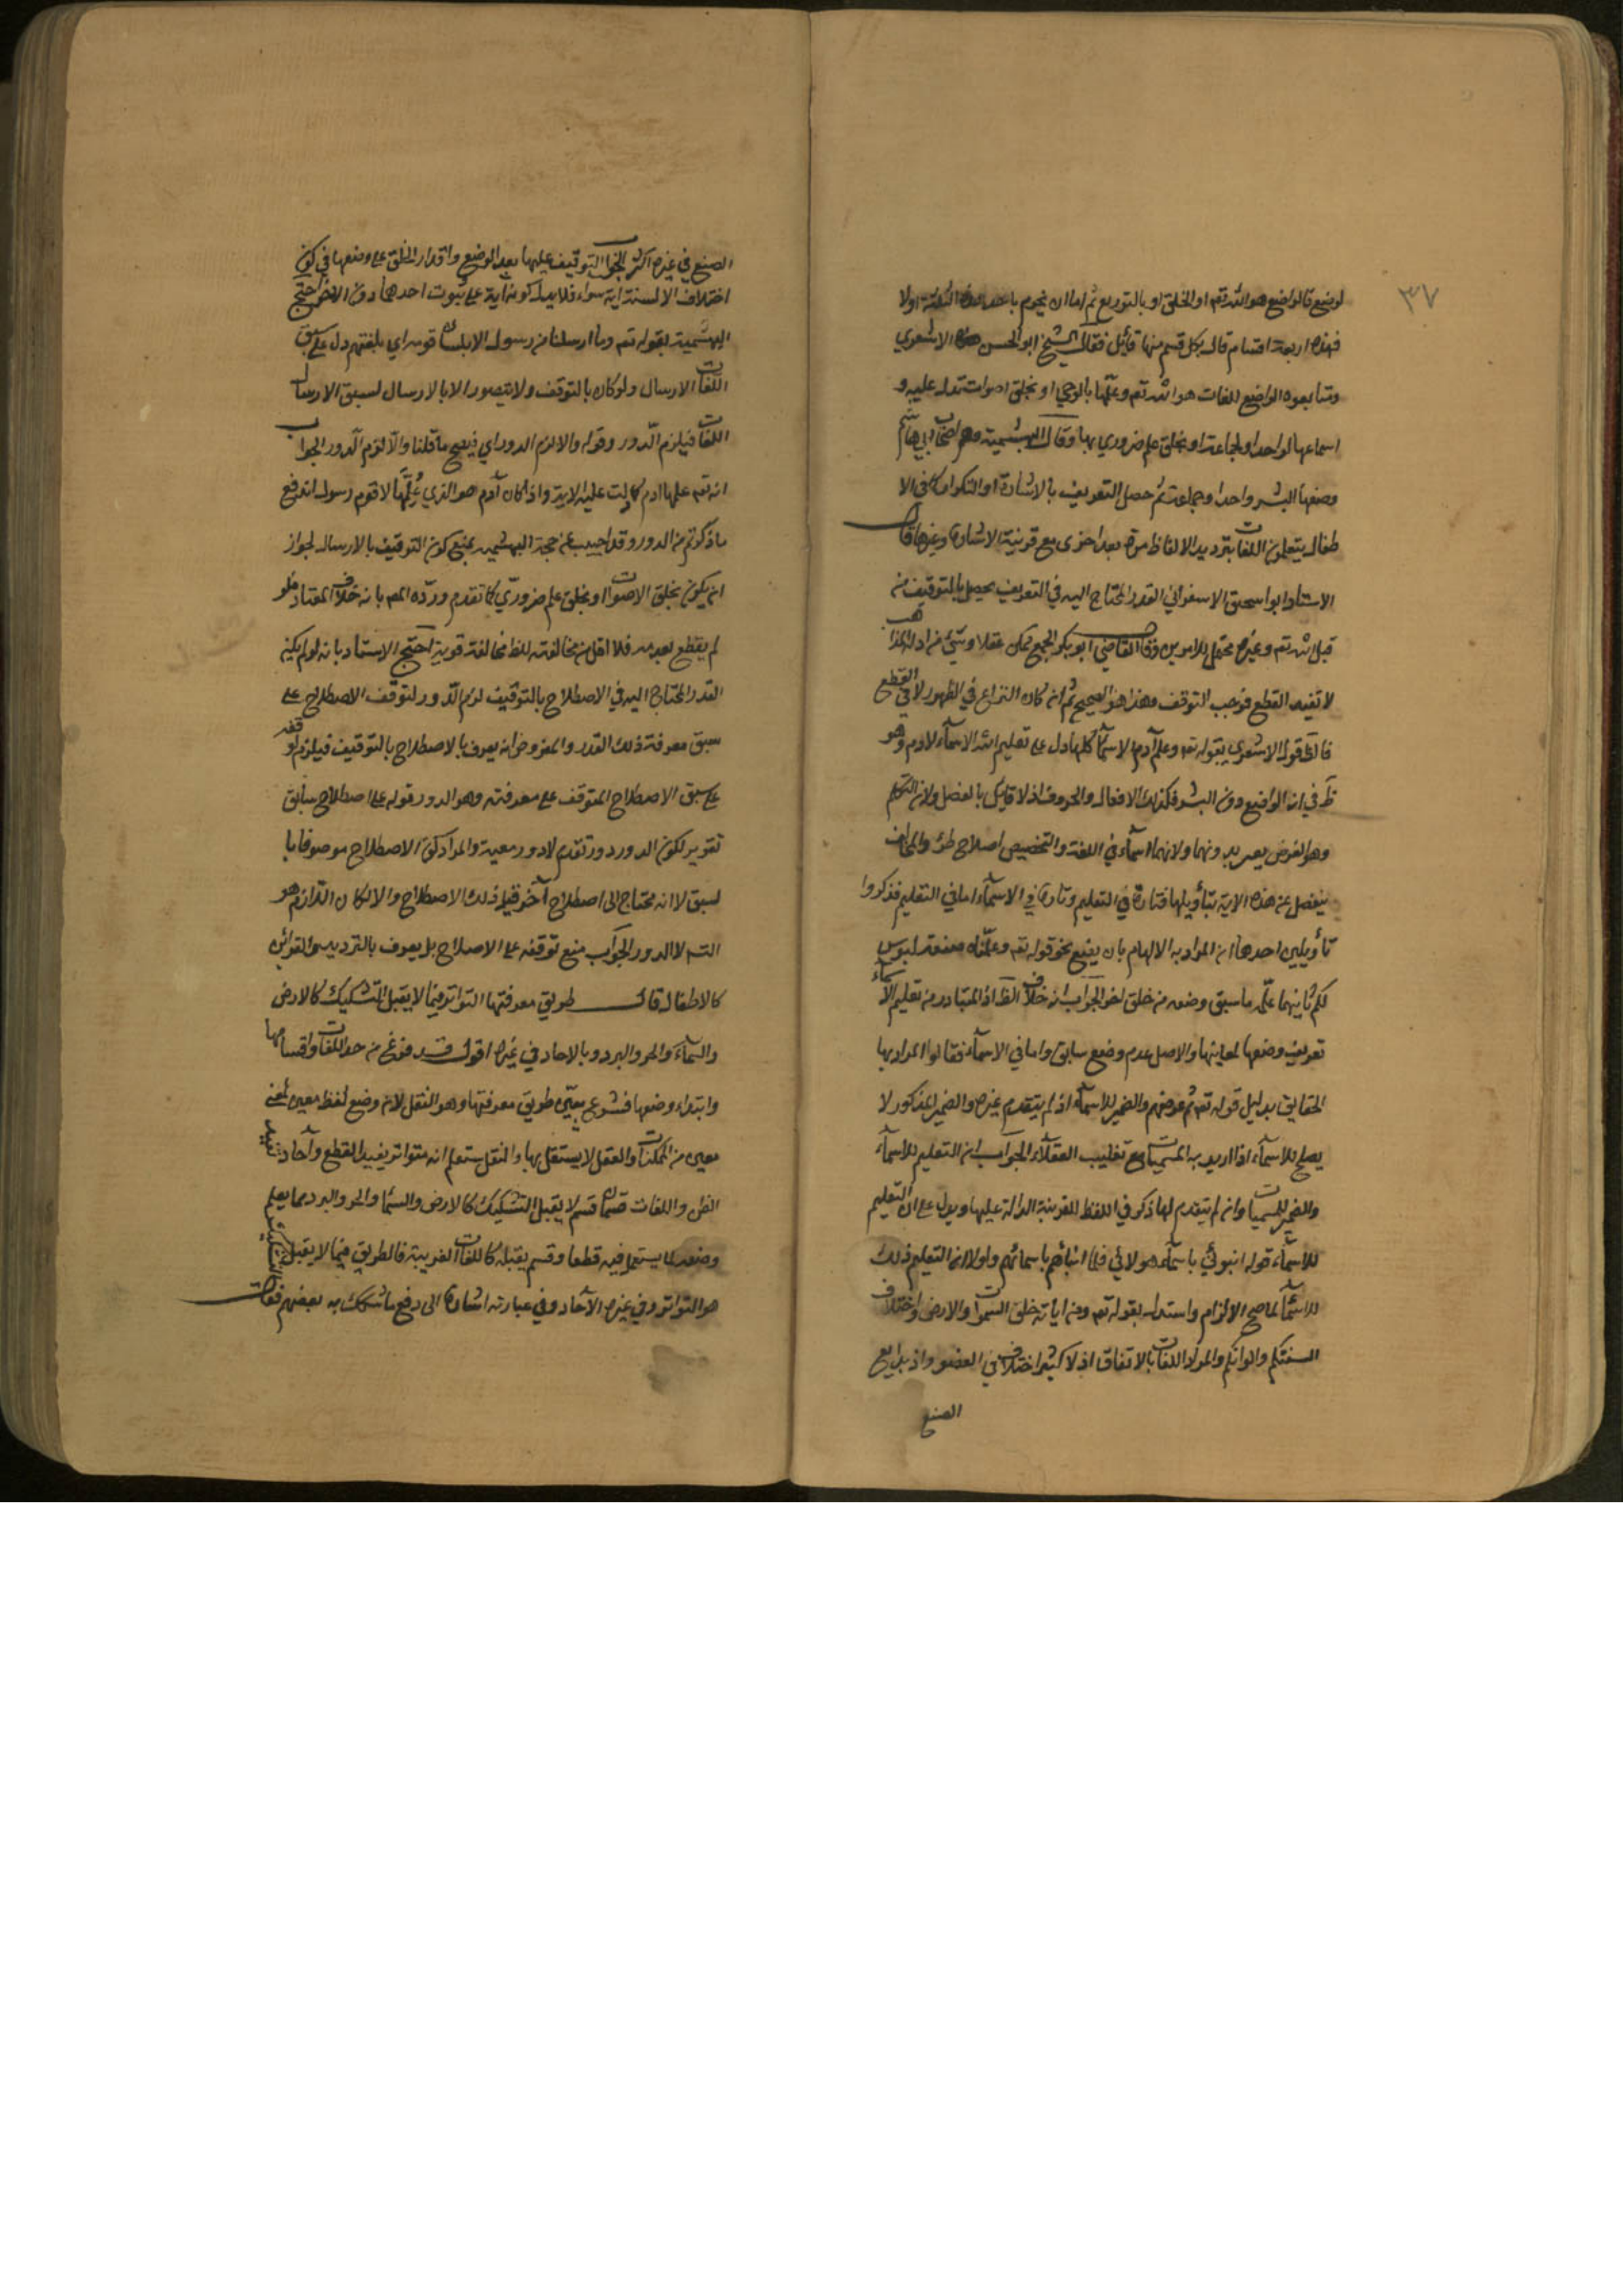 ٣٧
لوضع فالواضع هو الله تعم او الخلق او بالتوزيع ثم اما ان يجزم باحد هذه الثلثة اولا
فهذه اربعة اقسام قال بكل قسم منها قائل فقال الشيخ ابو الحسن الاشعري
ومتابعوه الواضع للغات هو الله تعم وعلمها بالوحي او بخلق اصوات تدل عليه و
اسماعها لواحد او لجماعة او بخلق علم ضروري بها وقال البهشمية وهم اصحاب ابي هاشم
وضعها البشر واحد او جماعة ثم حصل التعريف بالاشارة او التكرار كما في الا
طفال يتعلمون اللغات بترديد الالفاظ مرة بعد اخرى مع قرينة الاشارة وغيرها قال
الاستاد ابو اسحق الاسفرائني القدر المحتاج اليه في التعريف يحصل بالتوقيف من
قبل الله تعم وغيره محتمل للامرين وقال القاضي ابو بكر الجميع ممكن عقلا وشيء من ادلة المذاهب
لا تفيد القطع فوجب التوقف وهذا هو الصحيح ثم انه كان النزاع في الظهور لا في القطع
فالحق قول الاشعري بقوله تعم وعلم آدم الاسماء كلها دل على تعليم الله الاسماء لادم وهو
ظ في انه الواضع دون البشر فكذلك الافعال والحروف اذ لا قايل بالفصل ولان التكلم
وهو الغرض يعسر بدونهما ولانهما اسماء في اللغة والتخصيص اصلاح طرء والمخالف
ينفصل عن هذه الاية بتأويلها فتارة في التعليم وتارة في الاسماء اما في التعليم فذكروا
تأويلين احدهما ان المراد به الالهام بان يضع نحو قوله تعم وعلمناه صنعة لبوس
لكم ثانيهما علمه ما سبق وضعه من خلق اخر الجواب انه خلاف الظ اذ المتبادر من تعليم الاسماء
تعريف وضعها لمعانيها والاصل عدم وضع سابق واما في الاسماء فقالوا المراد بها
الحقايق بدليل قوله تعم ثم عرضهم والضمير للاسماء اذ لم يتقدم غيره والضمير المذكور لا
يصلح للاسماء اذا اريد به المسميات مع تغليب العقلاء الجواب ان التعليم للاسماء
والضمير للمسميات وان لم يتقدم لها ذكر في اللفظ للقرينة الدالة عليها ويدل على ان التعليم
للاسماء قوله انبوئي باسماء هولائي فلما انبأهم باسمائهم ولولا ان التعليم فذلك
للاسماء لما صح الالزام واستدل بقوله تعم ومن اياته خلق السموات والارض واختلاف
السنتكم والوانكم والمراد اللغات بالاتفاق اذ لا كثير اختلاف في العضو واذ بدايع
الصنع
الصنع في غيره اكثر الجواب التوقيف عليها بعد الوضع واقدار الخلق على وضعها في كون
اختلاف الالسنة اية سواء فلا يدل كونه اية على ثبوت احدهما دون الاخر احتج
البهشمية بقوله تعم وما ارسلنا من رسول الا بلسان قومه اي بلغتهم دل على سبق
اللغات الارسال ولو كان بالتوقيف ولا يتصور الا بالارسال لسبق الارسال
اللغات فيلزم الدور وقوله والا لزم الدور اي فيصح ما قلنا والا لزم الدور الجواب
انه تعم علمها ادم كما دلت عليه الاية واذا كان آدم هو الذي علمها لا قوم رسول اندفع
ما ذكرتم من الدور وقد اجيب عن حجة البهشمية بمنع كون التوقيف بالارسال لجواز
ان يكون بخلق الاصوات او بخلق علم ضروري كما تقدم ورده المص بانه خلاف المعتاد فلو
لم يقطع بعدمه فلا اقل من مخالفته للظ مخالفة قوية احتج الاستاد بانه لو لم يكن
القدر المحتاج اليه في الاصطلاح بالتوقيف لزم الدور لتوقف الاصطلاح على
سبق معرفة ذلك القدر والمفروض انه يعرف بالاصطلاح بالتوقيف فيلزم توقفه
على سبق الاصطلاح المتوقف على معرفته وهو الدور قوله على اصطلاح سابق
تقرير لكون الدور دور تقدم لا دور معية والمراد كون الاصطلاح موصوفا با
لسبق لا انه محتاج الى اصطلاح آخر قبل ذلك الاصطلاح والا لكان اللازم هو
التسه لا الدور الجواب منع توقفه على الاصلاح بل يعرف بالترديد والقرائن
كالاطفال قال طريق معرفتها التواتر فيما لا يقبل التشكيك كالارض
والسماء والحر والبرد وبالاحاد في غيره اقول قد فرغ من حد اللغات واقسامها
وابتداء وضعها فشرع يبين طريق معرفتها وهو النقل لان وضع لفظ معين لمعنى
معين من الممكنات والعقل لا يستقل بها والنقل ستعلم انه متواتر يفيد القطع وآحاد يفيد
الظن واللغات قسمان قسم لا يقبل التشكيك كالارض والسماء والحر والبرد مما يعلم
وضعه لما يستعمل فيه قطعا وقسم يقبله كاللغات الغريبة فالطريق فيما لا يقبل التشكيك
هو التواتر وفي غيره الآحاد وفي عبارته اشارة الى دفع ما شكك به بعضهم فقال